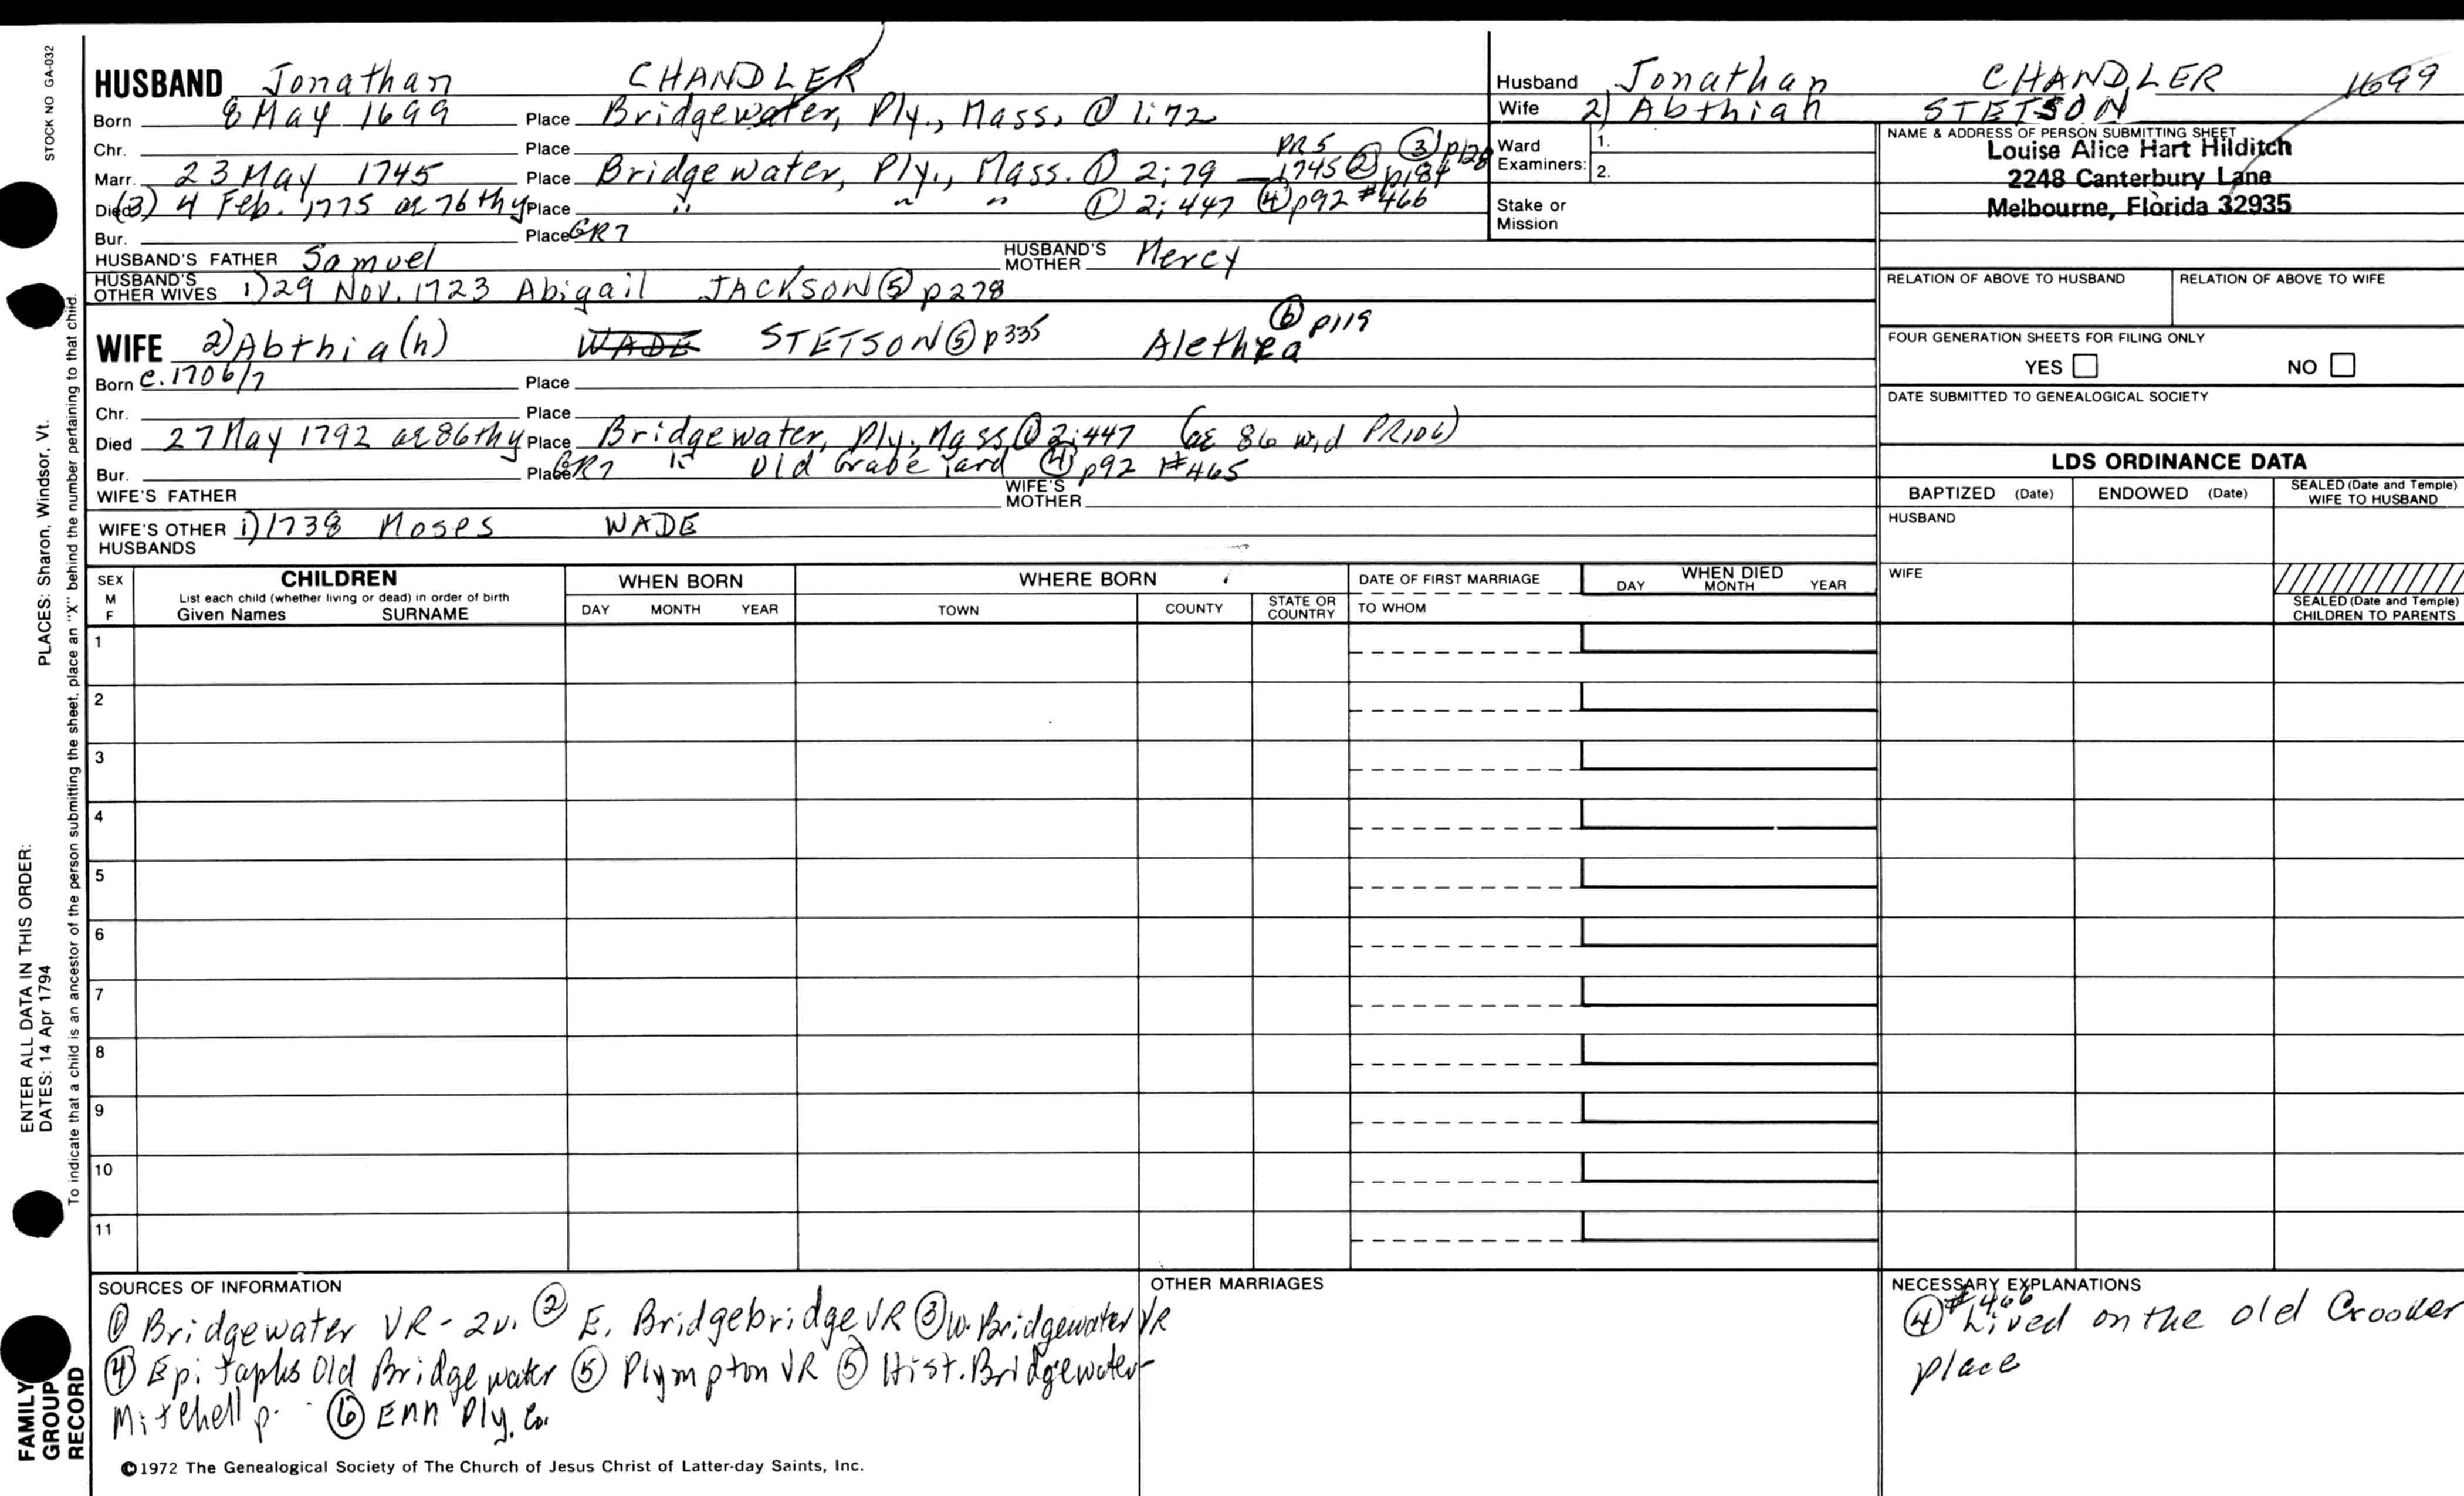 STOCK NO GA-032
HUSBAND Jonathan CHANDLER
Born 8 May 1699 Place Bridgewater, Ply., Mass. ① 1:72
Chr. Place PR5 ③ p128
Marr. 23 May 1745 Place Bridgewater, Ply., Mass. ① 2:79 — 1745 ② p184
Died (3) 4 Feb. 1775 ae 76thy Place " " " ① 2:447 ④ p92 #466
Bur. Place GR7
HUSBAND'S FATHER Samuel HUSBAND'S MOTHER Mercy
HUSBAND'S OTHER WIVES 1) 29 Nov. 1723 Abigail JACKSON ⑤ p278
WIFE 2) Abthia(h) WADE STETSON ⑤ p335 Alethea ⑥ p119
Born c. 1706/7 Place
Chr. Place
Died 27 May 1792 ae 86thy Place Bridgewater, Ply., Mass ① 2:447 (ae 86 wid PR106)
Bur. Place GR7 " Old Grave Yard ④ p92 #465
WIFE'S FATHER WIFE'S MOTHER
WIFE'S OTHER HUSBANDS 1) 1738 Moses WADE
Husband Jonathan CHANDLER 1699
Wife 2) Abthiah STETSON
Ward Examiners: 1.
2.
Stake or Mission
NAME & ADDRESS OF PERSON SUBMITTING SHEET
Louise Alice Hart Hilditch
2248 Canterbury Lane
Melbourne, Florida 32935
RELATION OF ABOVE TO HUSBAND RELATION OF ABOVE TO WIFE
FOUR GENERATION SHEETS FOR FILING ONLY
YES NO
DATE SUBMITTED TO GENEALOGICAL SOCIETY
LDS ORDINANCE DATA
BAPTIZED (Date) ENDOWED (Date) SEALED (Date and Temple) WIFE TO HUSBAND
HUSBAND
WIFE
SEALED (Date and Temple) CHILDREN TO PARENTS
SEX M F
CHILDREN
List each child (whether living or dead) in order of birth
Given Names SURNAME
WHEN BORN
DAY MONTH YEAR
WHERE BORN
TOWN COUNTY STATE OR COUNTRY
DATE OF FIRST MARRIAGE
TO WHOM
WHEN DIED
DAY MONTH YEAR
1
2
3
4
5
6
7
8
9
10
11
SOURCES OF INFORMATION
① Bridgewater VR - 2v. ② E. Bridgebridge VR ③ W. Bridgewater VR
④ Epitaphs Old Bridgewater ⑤ Plympton VR ⑤ Hist. Bridgewater-
Mitchell p. ⑥ Enn Ply. Co.
OTHER MARRIAGES
NECESSARY EXPLANATIONS
④ #466 Lived on the old Crooker
place
©1972 The Genealogical Society of The Church of Jesus Christ of Latter-day Saints, Inc.
ENTER ALL DATA IN THIS ORDER:
DATES: 14 Apr 1794 PLACES: Sharon, Windsor, Vt.
To indicate that a child is an ancestor of the person submitting the sheet, place an "X" behind the number pertaining to that child.
FAMILY
GROUP
RECORD